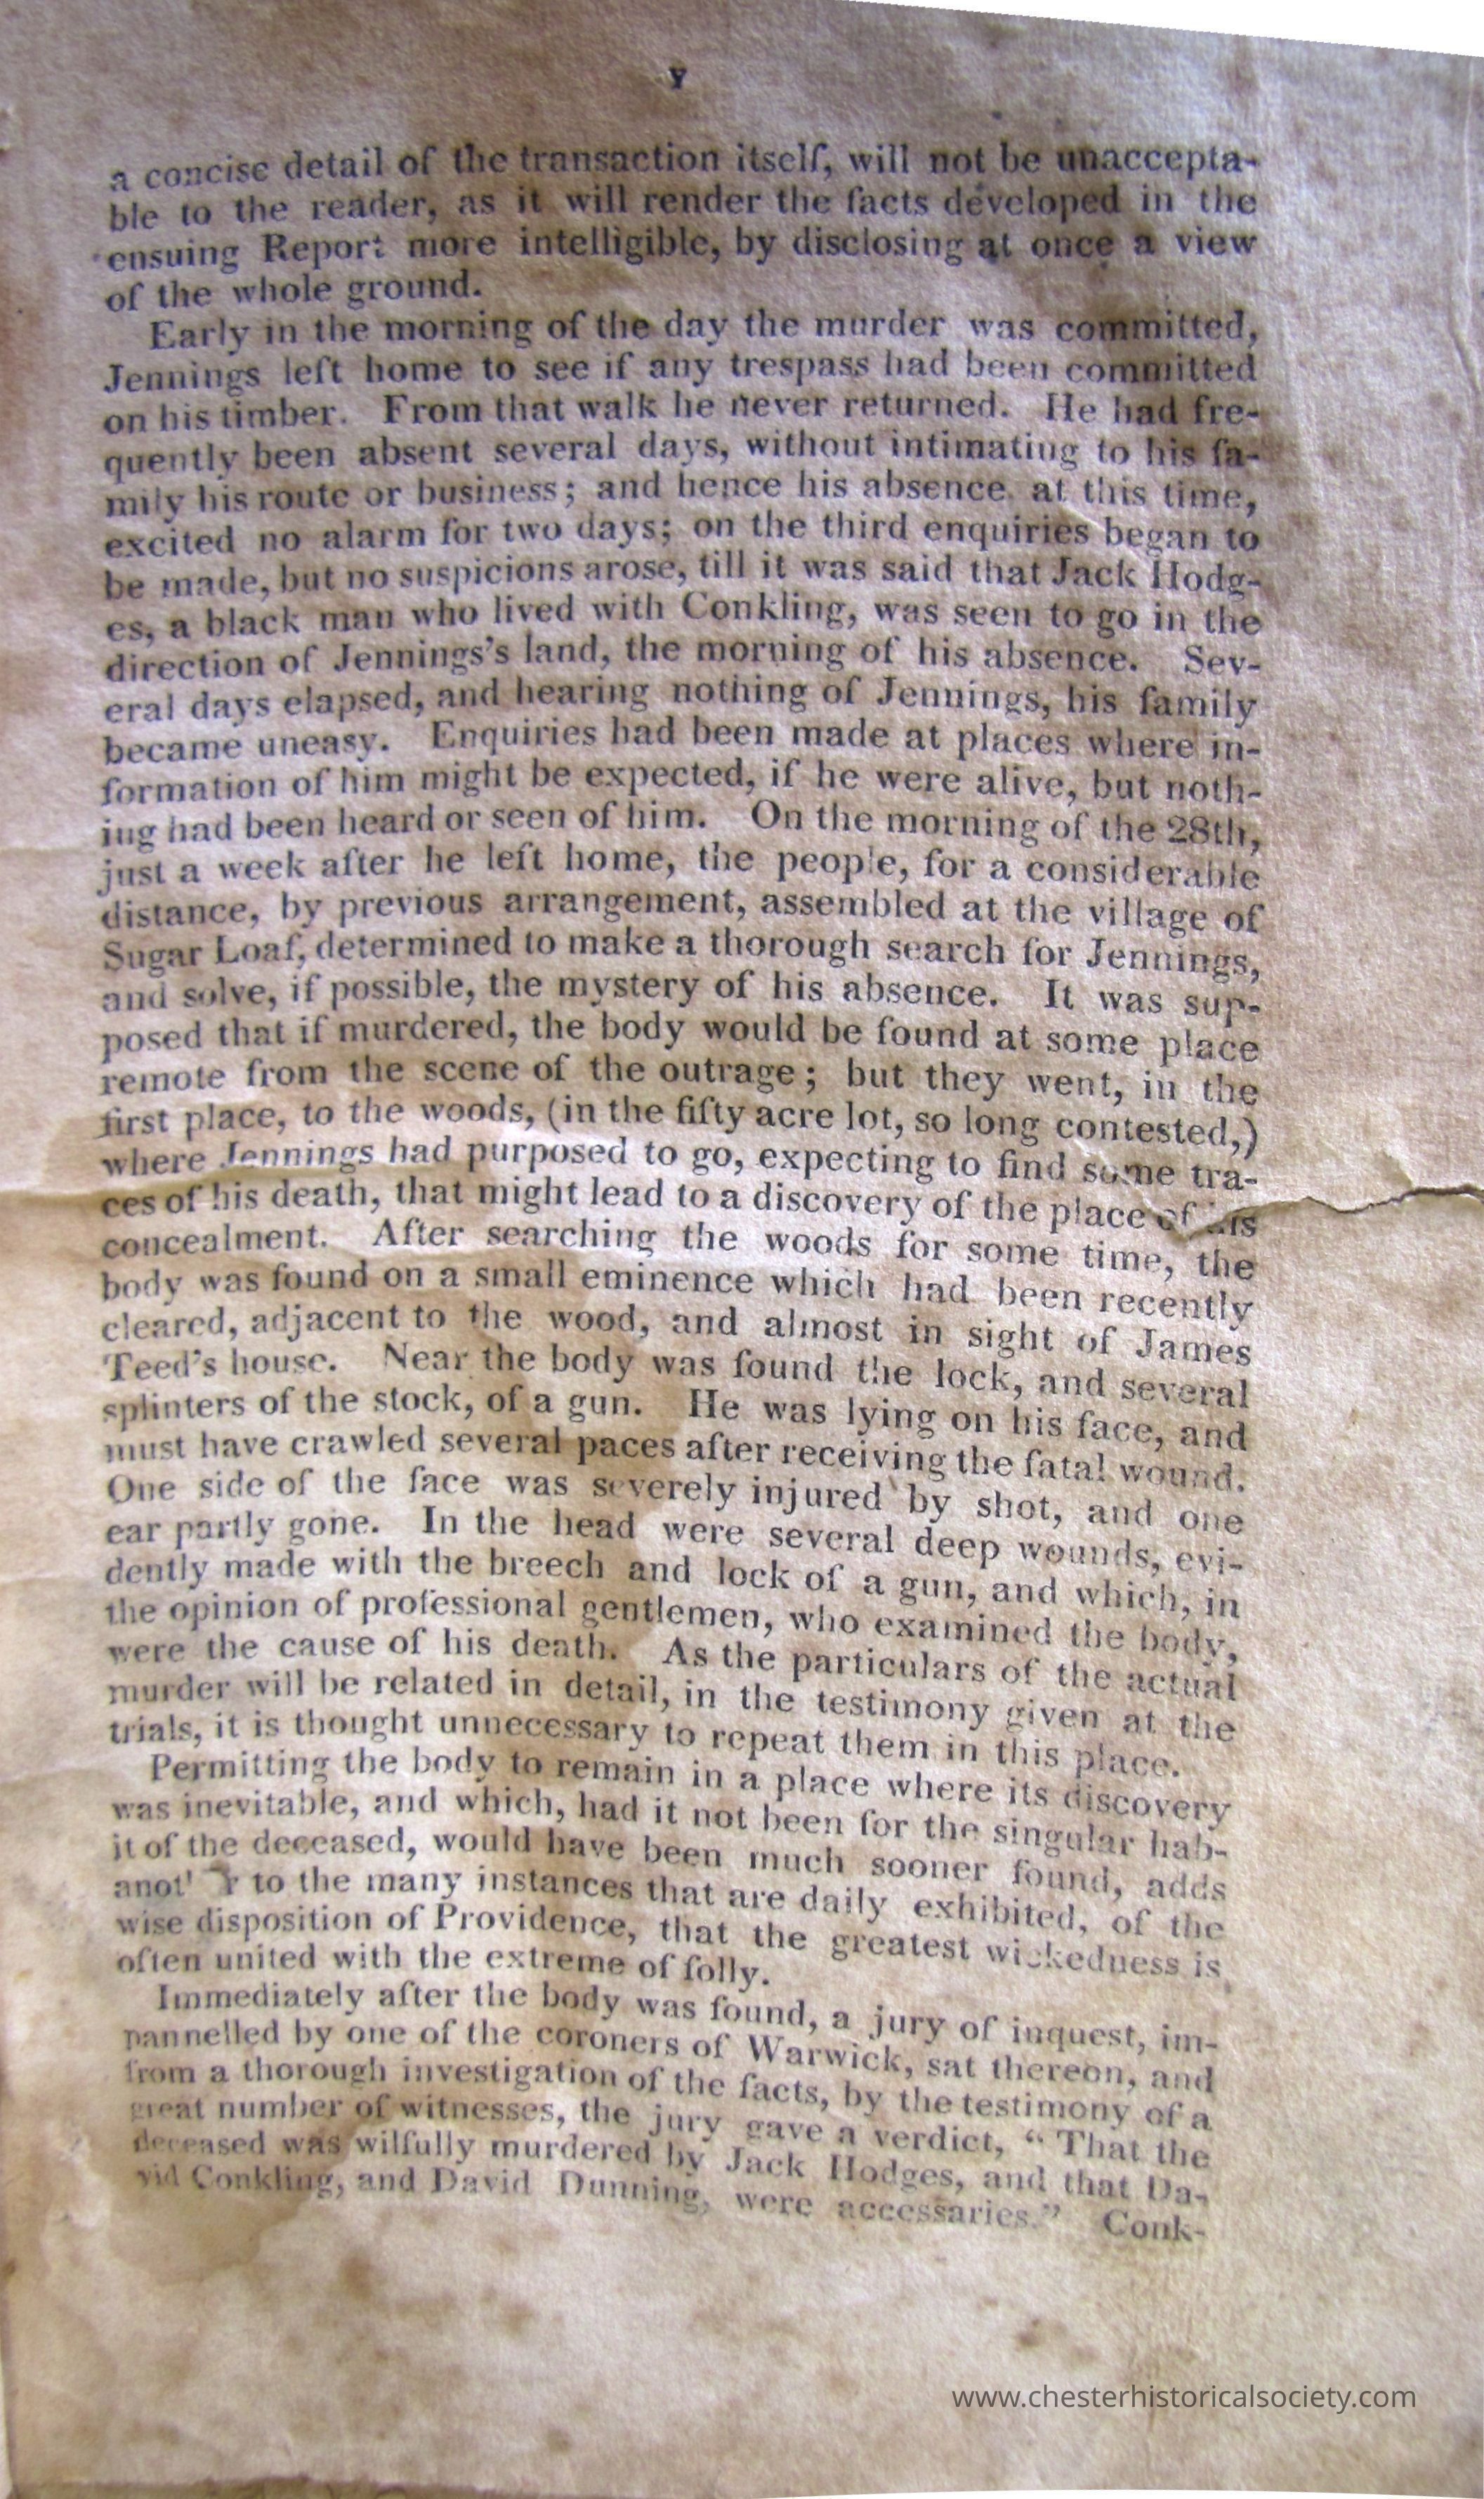 v
a concise detail of the transaction itself, will not be unaccepta-
ble to the reader, as it will render the facts developed in the
ensuing Report more intelligible, by disclosing at once a view
of the whole ground.
Early in the morning of the day the murder was committed,
Jennings left home to see if any trespass had been committed
on his timber. From that walk he never returned. He had fre-
quently been absent several days, without intimating to his fa-
mily his route or business; and hence his absence at this time,
excited no alarm for two days; on the third enquiries began to
be made, but no suspicions arose, till it was said that Jack Hodg-
es, a black man who lived with Conkling, was seen to go in the
direction of Jennings's land, the morning of his absence. Sev-
eral days elapsed, and hearing nothing of Jennings, his family
became uneasy. Enquiries had been made at places where in-
formation of him might be expected, if he were alive, but noth-
ing had been heard or seen of him. On the morning of the 28th,
just a week after he left home, the people, for a considerable
distance, by previous arrangement, assembled at the village of
Sugar Loaf, determined to make a thorough search for Jennings,
and solve, if possible, the mystery of his absence. It was sup-
posed that if murdered, the body would be found at some place
remote from the scene of the outrage; but they went, in the
first place, to the woods, (in the fifty acre lot, so long contested,)
where Jennings had purposed to go, expecting to find some tra-
ces of his death, that might lead to a discovery of the place of his
concealment. After searching the woods for some time, the
body was found on a small eminence which had been recently
cleared, adjacent to the wood, and almost in sight of James
Teed's house. Near the body was found the lock, and several
splinters of the stock, of a gun. He was lying on his face, and
must have crawled several paces after receiving the fatal wound.
One side of the face was severely injured by shot, and one
ear partly gone. In the head were several deep wounds, evi-
dently made with the breech and lock of a gun, and which, in
the opinion of professional gentlemen, who examined the body,
were the cause of his death. As the particulars of the actual
murder will be related in detail, in the testimony given at the
trials, it is thought unnecessary to repeat them in this place.
Permitting the body to remain in a place where its discovery
was inevitable, and which, had it not been for the singular hab-
it of the deceased, would have been much sooner found, adds
to the many instances that are daily exhibited, of the
wise disposition of Providence, that the greatest wickedness is
often united with the extreme of folly.
Immediately after the body was found, a jury of inquest, im-
pannelled by one of the coroners of Warwick, sat thereon, and
from a thorough investigation of the facts, by the testimony of a
great number of witnesses, the jury gave a verdict, “ That the
deceased was wilfully murdered by Jack Hodges, and that Da-
vid Conkling, and David Dunning, were accessaries.” Conk-
www.chesterhistoricalsociety.com